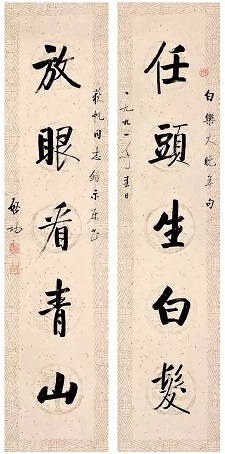 任頭生白髮
白樂天晚年句
一九九一年春日
放眼看青山
同志
啟功